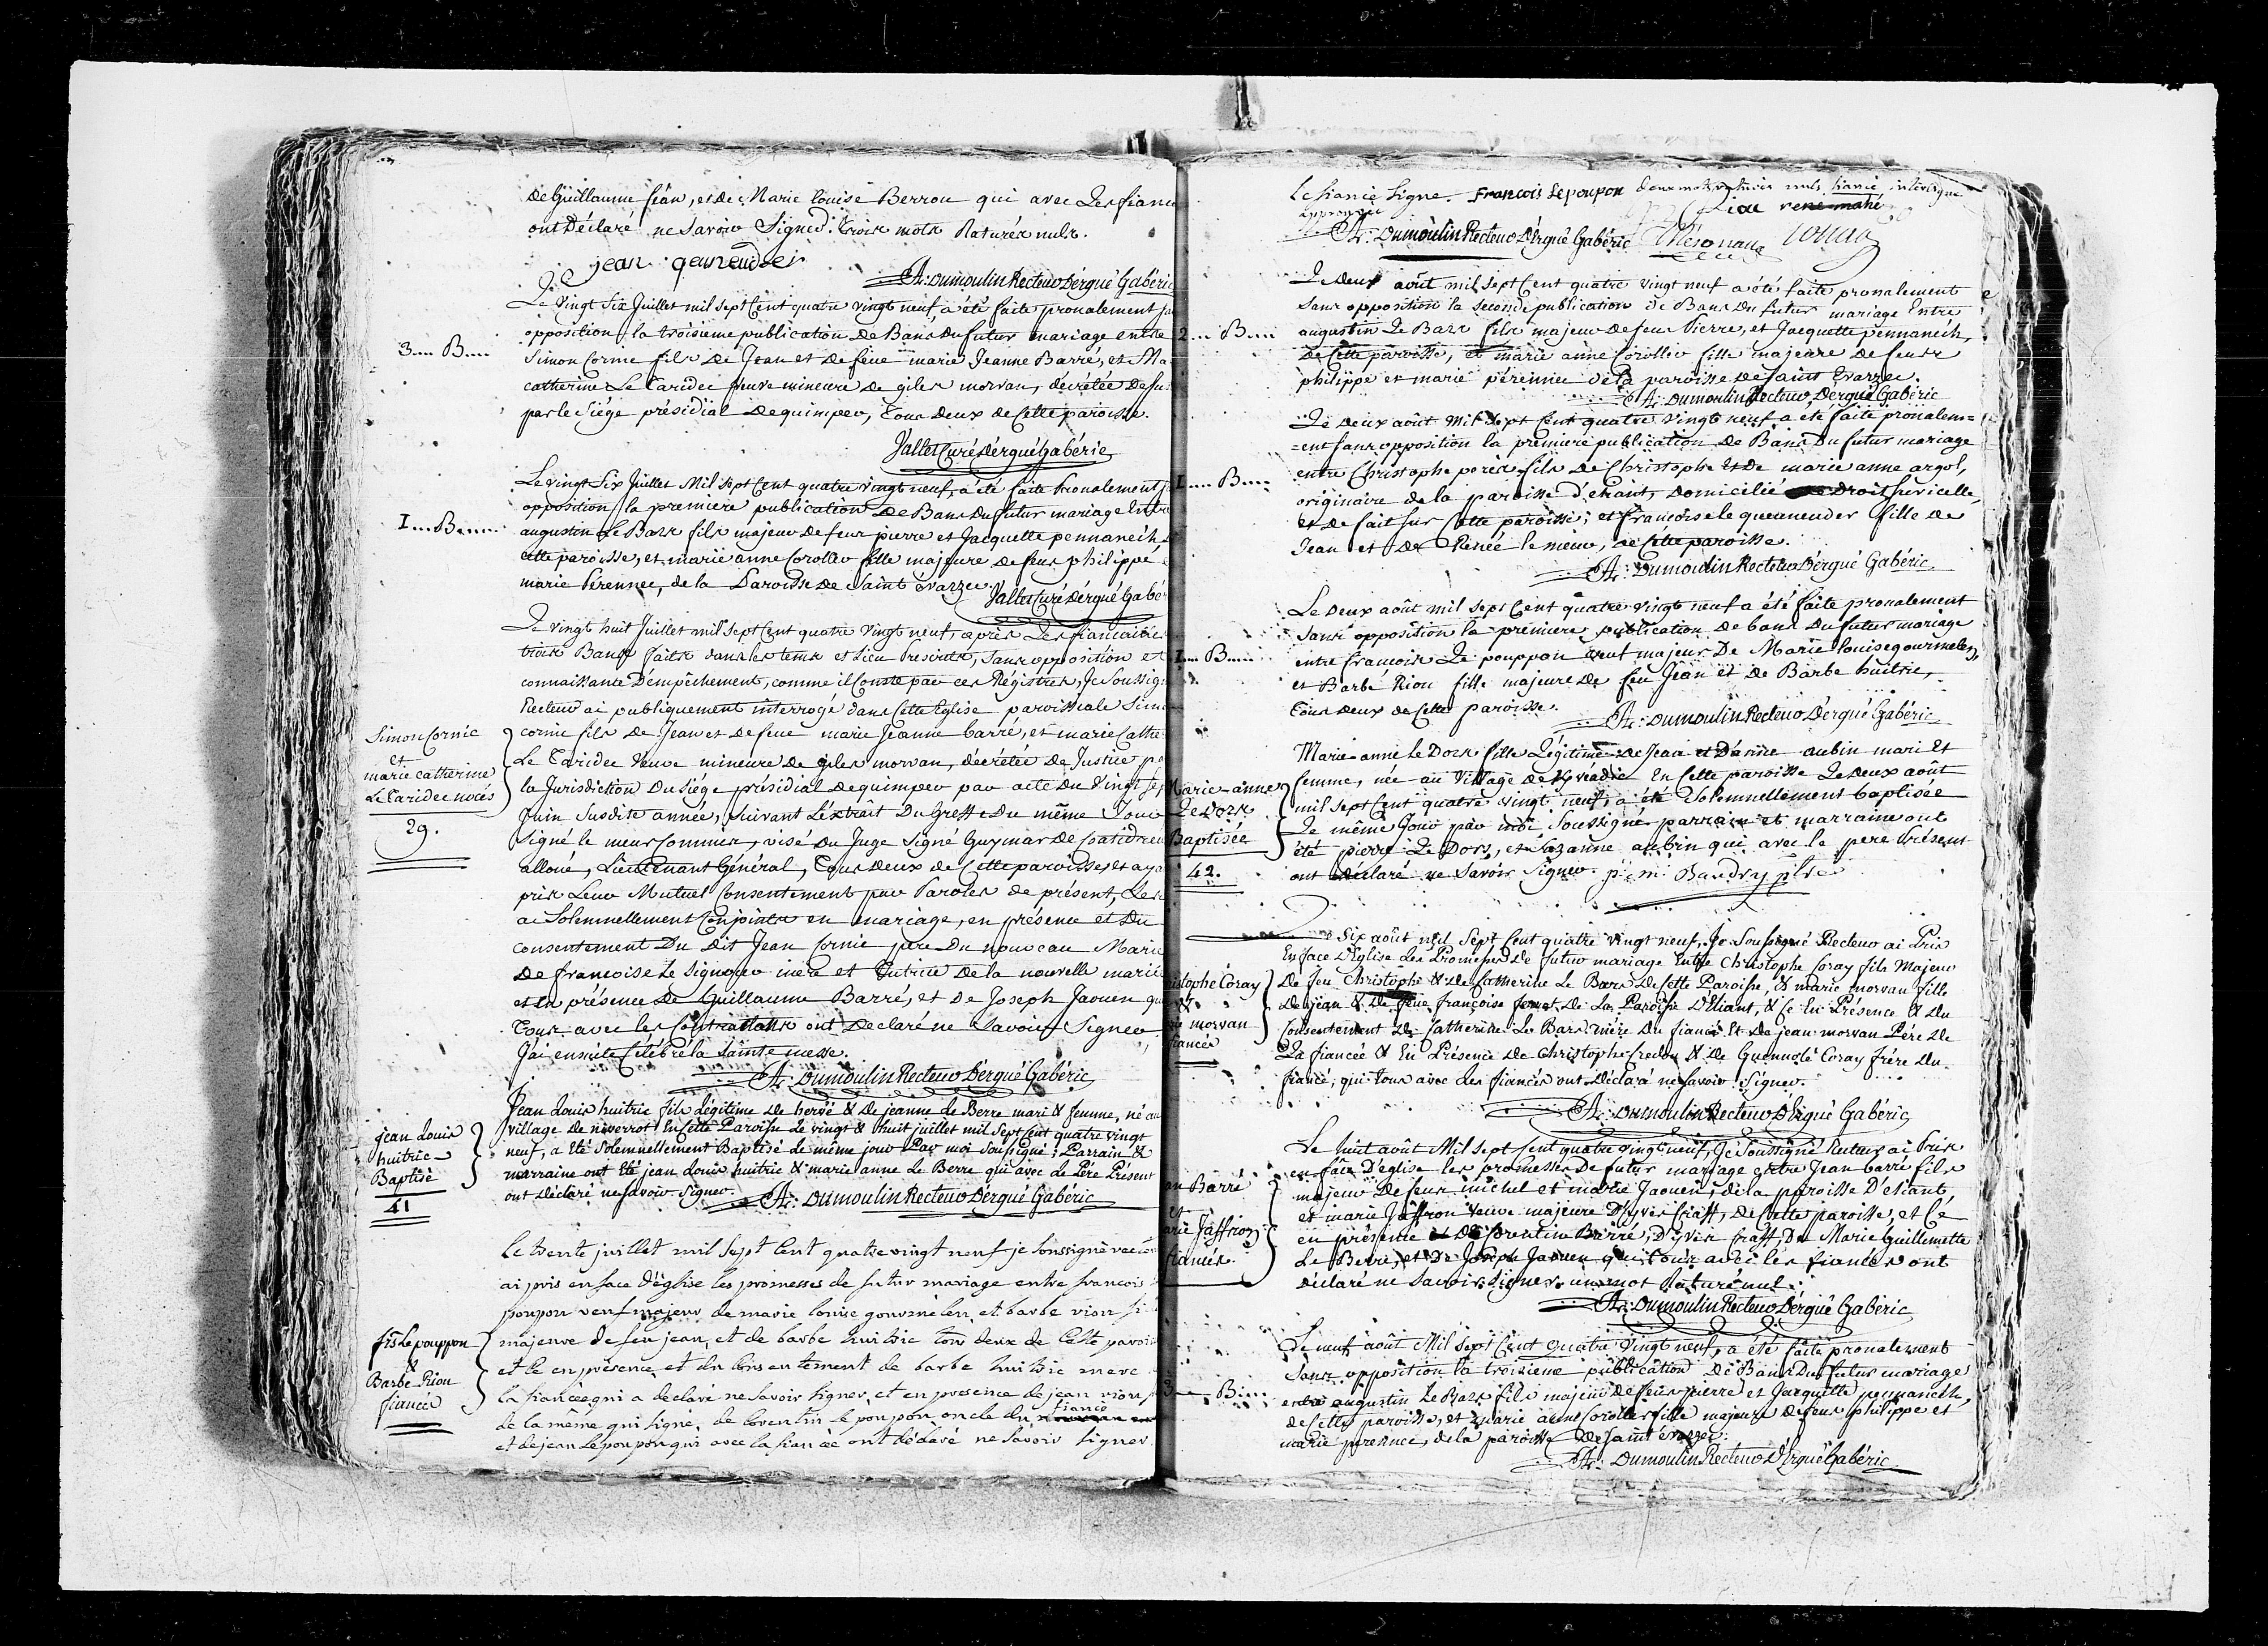 de Guillaume féan, et de Marie louise Berrou qui avec Les fianc
ont Déclaré ne Savoir Signer. Trois mots Raturés nuls.
jean queneudec
A: Dumoulin Recteur D'ergué Gabéric
3.... B....
Le Vingt Six Juillet mil Sept Cent quatre vingt neuf, a été faite pronalement
opposition la troisieme publication de Bans du futur mariage entre
Simon Cornic fils de Jean et de feue marie Jeanne Barré, et Ma
catherine Le Caridec veuve mineure de giles morvan, décrétée de
par le Siége présidial de quimper, Tous Deux de Cette paroisse.
Vallet Curé D'ergué Gabéric
I.... B.....
Le vingt Six Juillet Mil Sept Cent quatre vingt neuf, a été faite Pronalement
opposition la premiere publication de Bans du futur mariage Entre
augustin Le Bars fils majeur de feus pierre et Jacquette pennaneich
cette paroisse, et marie anne Coroller fille majeure de feus philippé
marie Pérennec, de la Paroisse de Saint Evarzec.
Vallet Curé D'ergué Gabé
Simon Cornic
et
marie catherine
Le Caridec nocés
29.
Le vingt huit Juillet mil Sept Cent quatre vingt neuf, après Les fiancailles
trois Bans faits dans les tems et Lieu Prescrits, Sans opposition et
connaissance D'empêchement, comme il Conste par ces Régistres, Je Soussig
Recteur ai publiquement interrogé dans Cette Eglise paroissiale Sim
cornic fils de Jean et de feue marie Jeanne barré, et marie Cathe
Le Caridec Veuve mineure de giles morvan, décrétée de Justice pa
la Jurisdiction Du Siége présidial de quimper par acte du Vingt Se
Juin Susdite année, Suivant L'extrait Du Greffe Du même Jour
Signé le meur Commis, visé Du Juge Signé Guymar De
alloué, Lieutenant Général, Tous Deux de Cette paroisse, et aya
pris Leur Mutuel Consentement par Paroles de présent, Les
ai Solemnellement Conjoints en mariage, en présence et Du
consentement Du Dit Jean Cornic pere Du nouveau Marié
De francoise Le Signour mére et Tutrice De la nouvelle mariée
et en présence de Guillaume Barré, et De Joseph Jaouen qu
Tous avec les Contractans ont Declaré ne Savoir Signer
J'ai ensuite Célébré la Sainte messe.
A: Dumoulin Recteur D'ergué Gabéric
jean Louis
huitric
Baptisé
41
Jean Louis huitric fils Légitime de hervé & de jeanne Le Berre mari & femme, né au
Village de niverrot En Cette Paroisse Le vingt & huit juillet mil Sept Cent quatre vingt
neuf, a Eté Solemnellement Baptisé de même jour Par moi Soussigné; Parrain &
marraine ont Eté jean Louis huitric & marie anne Le Berre qui avec Le Père Présent
ont Déclaré ne Savoir Signer.
A: Dumoulin Recteur D'ergué Gabéric
fis Le pouppon
&
Barbe Riou
fiancés
Le trente juillet mil Sept Cent quatre vingt neuf je Soussigné
ai pris en face d'église les promesses de futur mariage entre francois
poupon veuf majeur de marie louise gourmelen et barbe riou
majeure de feu jean, et de barbe huitric tous deux de Cette paroi
et ce en présence et du Consentement de barbe huitric mere
la fiancée qui a déclaré ne Savoir Signer, et en présence de jean riou
de la même qui Signe, de Corentin le poupon, oncle du fiancé
et de jean Le poupon qui avec la fiancée ont déclaré ne Savoir Signer
Le fiancé Signe. Francois Le poupon deux mots raturés nuls, fiancé, interligne
approuvée
Riou rene mahé
A: Dumoulin Recteur D'ergué Gabéric
2.... B....
Le Deux août mil Sept Cent quatre vingt neuf a été faite pronalement
Sans opposition la Seconde publication de Bans Du futur mariage Entre
augustin Le Bars fils majeur de feus Pierre, et Jacquette pennaneich,
De Cette paroisse, et marie anne Coroller fille majeure de feus
philippe et marie pérennec de la paroisse de Saint Evarzec.
A: Dumoulin Recteur D'ergué Gabéric
I.... B....
Le Deux août Mil Sept Cent quatre Vingt neuf a été faite pronalem=
=ent Sans opposition la premiere publication De Bans Du futur mariage
entre Christophe porés fils de Christophe Et De marie anne argol,
originaire de la paroisse d'Eliant, Domicilié de Droit Sur icelle,
et de fait Sur Cette paroisse; et francoise le queneuder fille de
Jean et De Renée le méur, de Cette paroisse.
A: Dumoulin Recteur D'ergué Gabéric
I.... B....
Le Deux août mil Sept Cent quatre vingt neuf a été faite pronalement
Sans opposition la premiere publication de bans du futur mariage
entre francois Le pouppon veuf majeur De Marie Louise gourmelen,
et Barbe Riou fille majeure de feu Jean et de Barbe huitric,
Tous deux de Cette paroisse.
A: Dumoulin Recteur D'ergué Gabéric
Marie-anne
Le Dors
Baptisée
42.
Marie-anne Le Dors fille Légitime de Jean et D'anne aubin mari Et
femme, née au Village de En Cette paroisse Le Deux août
mil Sept Cent quatre vingt neuf, a été Solemnellement baptisée
Le même Jour par moi Soussigné parrain et marraine ont
été pierre Le Dors, et Suzanne aubin qui avec le pere Présent
ont Déclaré ne Savoir Signer. Baudry ptre
istophe Coray
&
ie morvan
fiancés
Six août mil Sept Cent quatre vingt neuf, Je Soussigné Recteur ai Pris
En face D'Eglise Les Promesses De futur mariage Entre Christophe Coray fils Majeur
De feu Christophe & de Catherine Le Bars de Cette Paroisse, & marie morvan fille
de jean & De feue françoise De La Paroisse D'Eliant, & Ce En Présence & du
Consentement de Catherine Le Bars mére Du fiancé Et de jean morvan Pére de
La fiancée & En Présence de Christophe Credou & de Guennolé Coray frére du
fiancé, qui Tous avec Les fiancés ont Déclaré ne Savoir Signer.
A: Dumoulin Recteur D'Ergué Gabéric
an Barré
et
arie Jaffrion
fiancés.
Le huit août Mil Sept Cent quatre vingt neuf, Je Soussigné Recteur ai Pris
en face D'eglise les promesses De futur mariage entre Jean barré fils
majeur De feus michel et marie Jaouen, de la paroisse D'eliant,
et marie Jaffrou veuve majeure D'yves Craff, De Cette paroisse, et Ce
en présence De Corentin Barré, D'yves Craff, De Marie Guillemette
Le Berre, et De Joseph Jaouen qui tous avec les fiancés ont
déclaré ne Savoir Signer. un mot Raturé nul.
A: Dumoulin Recteur D'ergué Gabéric
3.... B....
Le neuf août Mil Sept Cent quatre Vingt neuf, a été faite pronalement
Sans opposition la troisieme publication De Bans Du futur mariage
entre augustin Le Bars fils majeur de feus pierre et Jacquette pennaneich,
de Cette paroisse, et marie anne Coroller fille majeure de feus philippe et
marie perennec, de la paroisse De Saint évarzec.
A: Dumoulin Recteur D'Ergué Gabéric